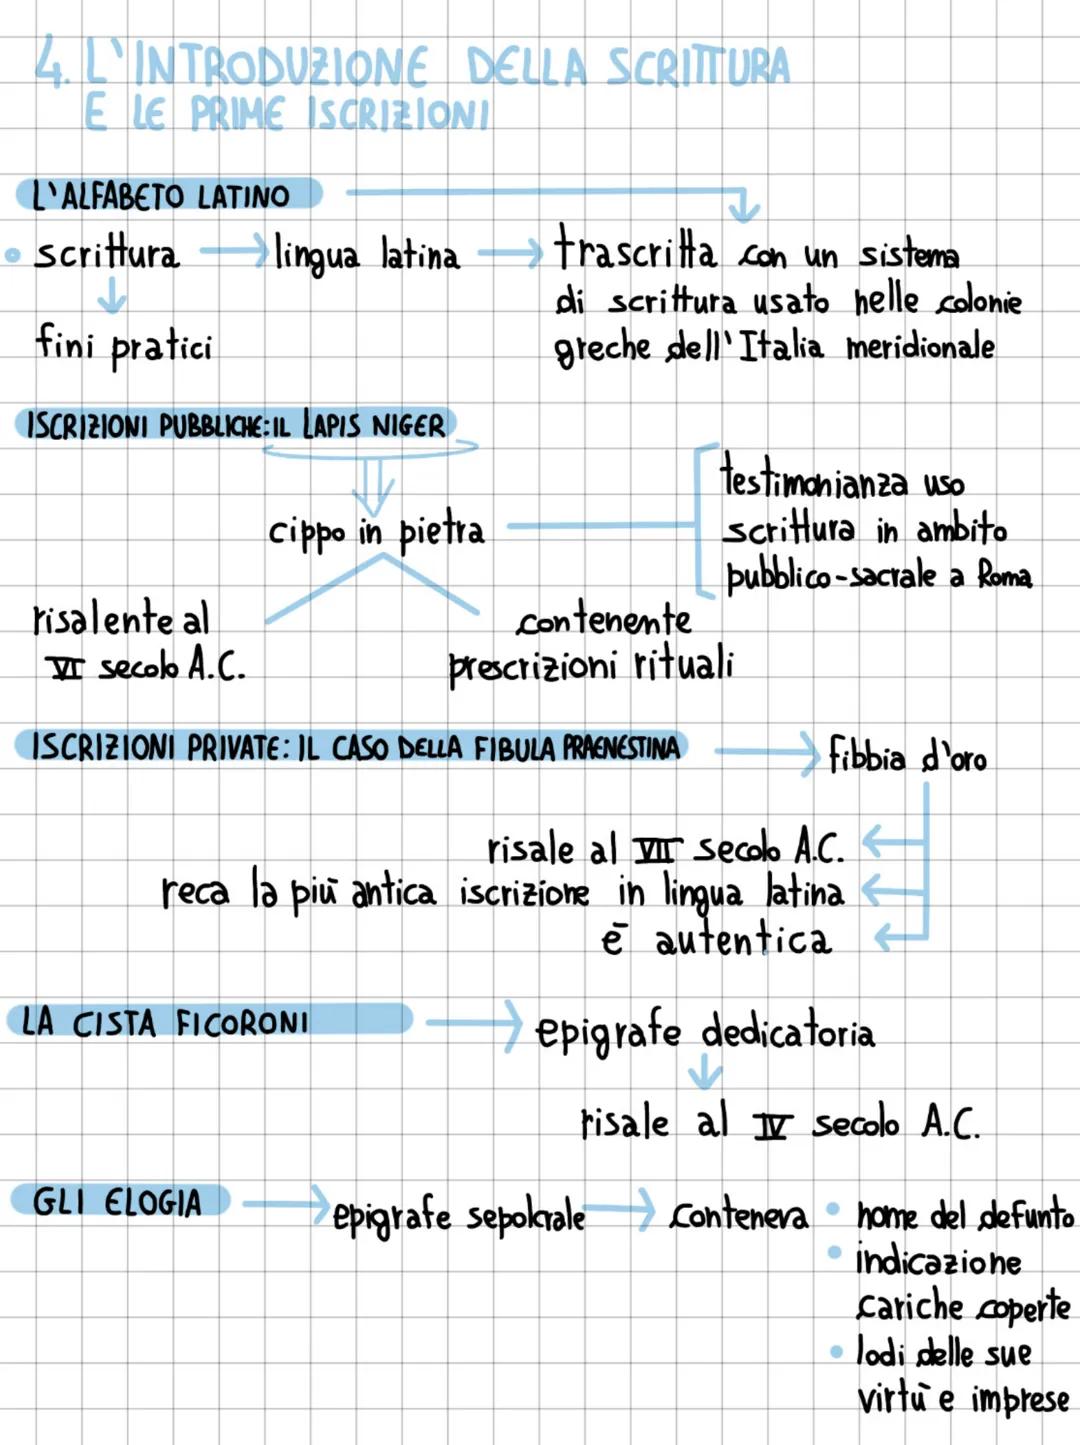 4. L'INTRODUZIONE DELLA SCRITTURA
E LE PRIME ISCRIZIONI
L'ALFABETO LATINO
scrittura → lingua latina → trascritta con un sistema
di scrittura usato nelle colonie
fini pratici
greche dell'Italia meridionale
ISCRIZIONI PUBBLICHE: IL LAPIS NIGER
testimonianza uso
cippo in pietra
scrittura in ambito
pubblico-sacrale a Roma
risalente al
VI secolo A.C.
contenente
prescrizioni rituali
ISCRIZIONI PRIVATE: IL CASO DELLA FIBULA PRAENESTINA → fibbia d'oro
risale al VII secolo A.C.
reca la più antica iscrizione in lingua latina
è autentica
LA CISTA FICORONI → epigrafe dedicatoria
risale al IV secolo A.C.
GLI ELOGIA → epigrafe sepolcrale → conteneva • nome del defunto
• indicazione
cariche coperte
• lodi delle sue
virtù e imprese